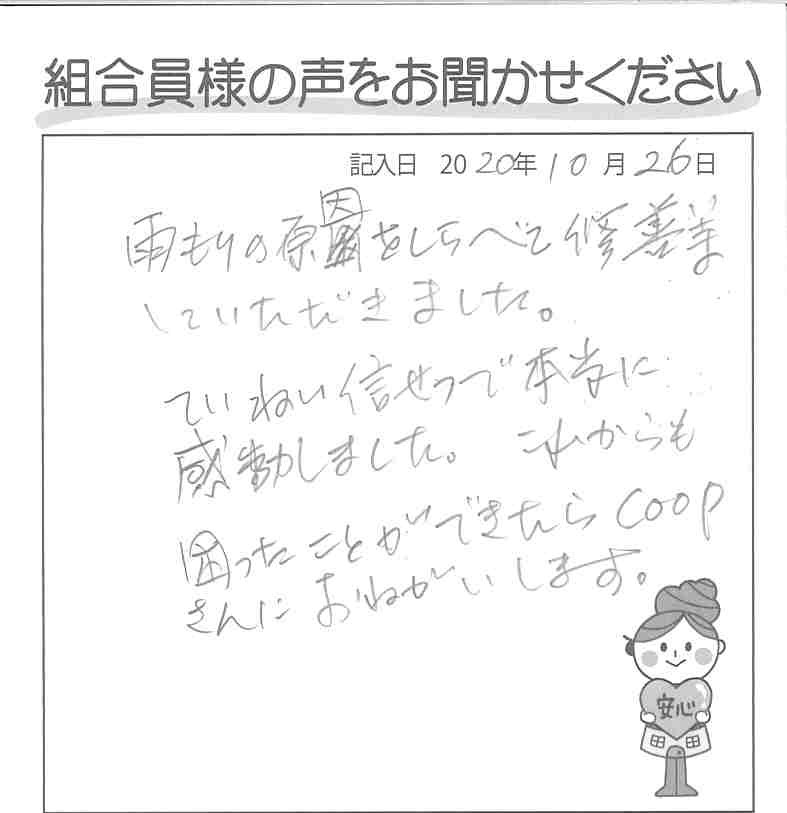 組合員様の声をお聞かせください
記入日 2020年10月26日
雨もりの原因をしらべて修善
していただきました。
ていねい信せつで本当に
感動しました。これからも
困ったことができたらcoop
さんにおねがいします。
安心